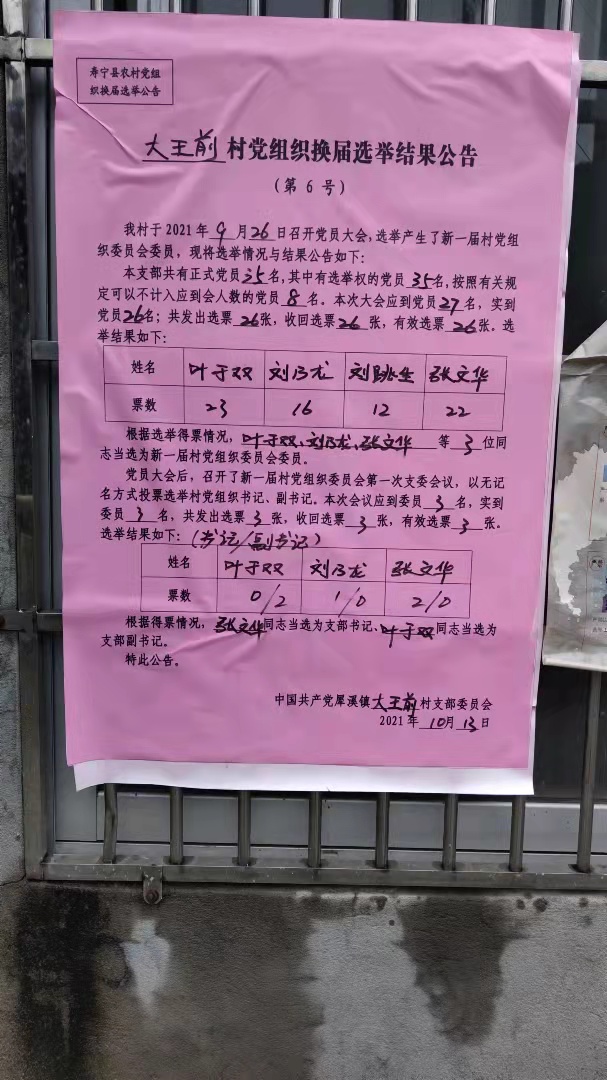 寿宁县农村党组
织换届选举公告
大王前村党组织换届选举结果公告
(第 6 号)
我村于2021年9月26日召开党员大会,选举产生了新一届村党组
织委员会委员,现将选举情况与结果公告如下:
本支部共有正式党员35名,其中有选举权的党员35名,按照有关规
定可以不计入应到会人数的党员8名。本次大会应到党员27名,实到
党员26名;共发出选票26张,收回选票26张,有效选票26张。选
举结果如下:
姓名 叶于双 刘乃龙 刘跳生 张文华
票数 23 16 12 22
根据选举得票情况,叶于双、刘乃龙、张文华等3位同
志当选为新一届村党组织委员会委员。
党员大会后,召开了新一届村党组织委员会第一次支委会议,以无记
名方式投票选举村党组织书记、副书记。本次会议应到委员3名,实到
委员3名,共发出选票3张,收回选票3张,有效选票3张。
选举结果如下:(书记/副书记)
姓名 叶于双 刘乃龙 张文华
票数 0/2 1/0 2/0
根据得票情况,张文华同志当选为支部书记、叶于双同志当选为
支部副书记。
特此公告。
中国共产党犀溪镇大王前村支部委员会
2021年10月13日